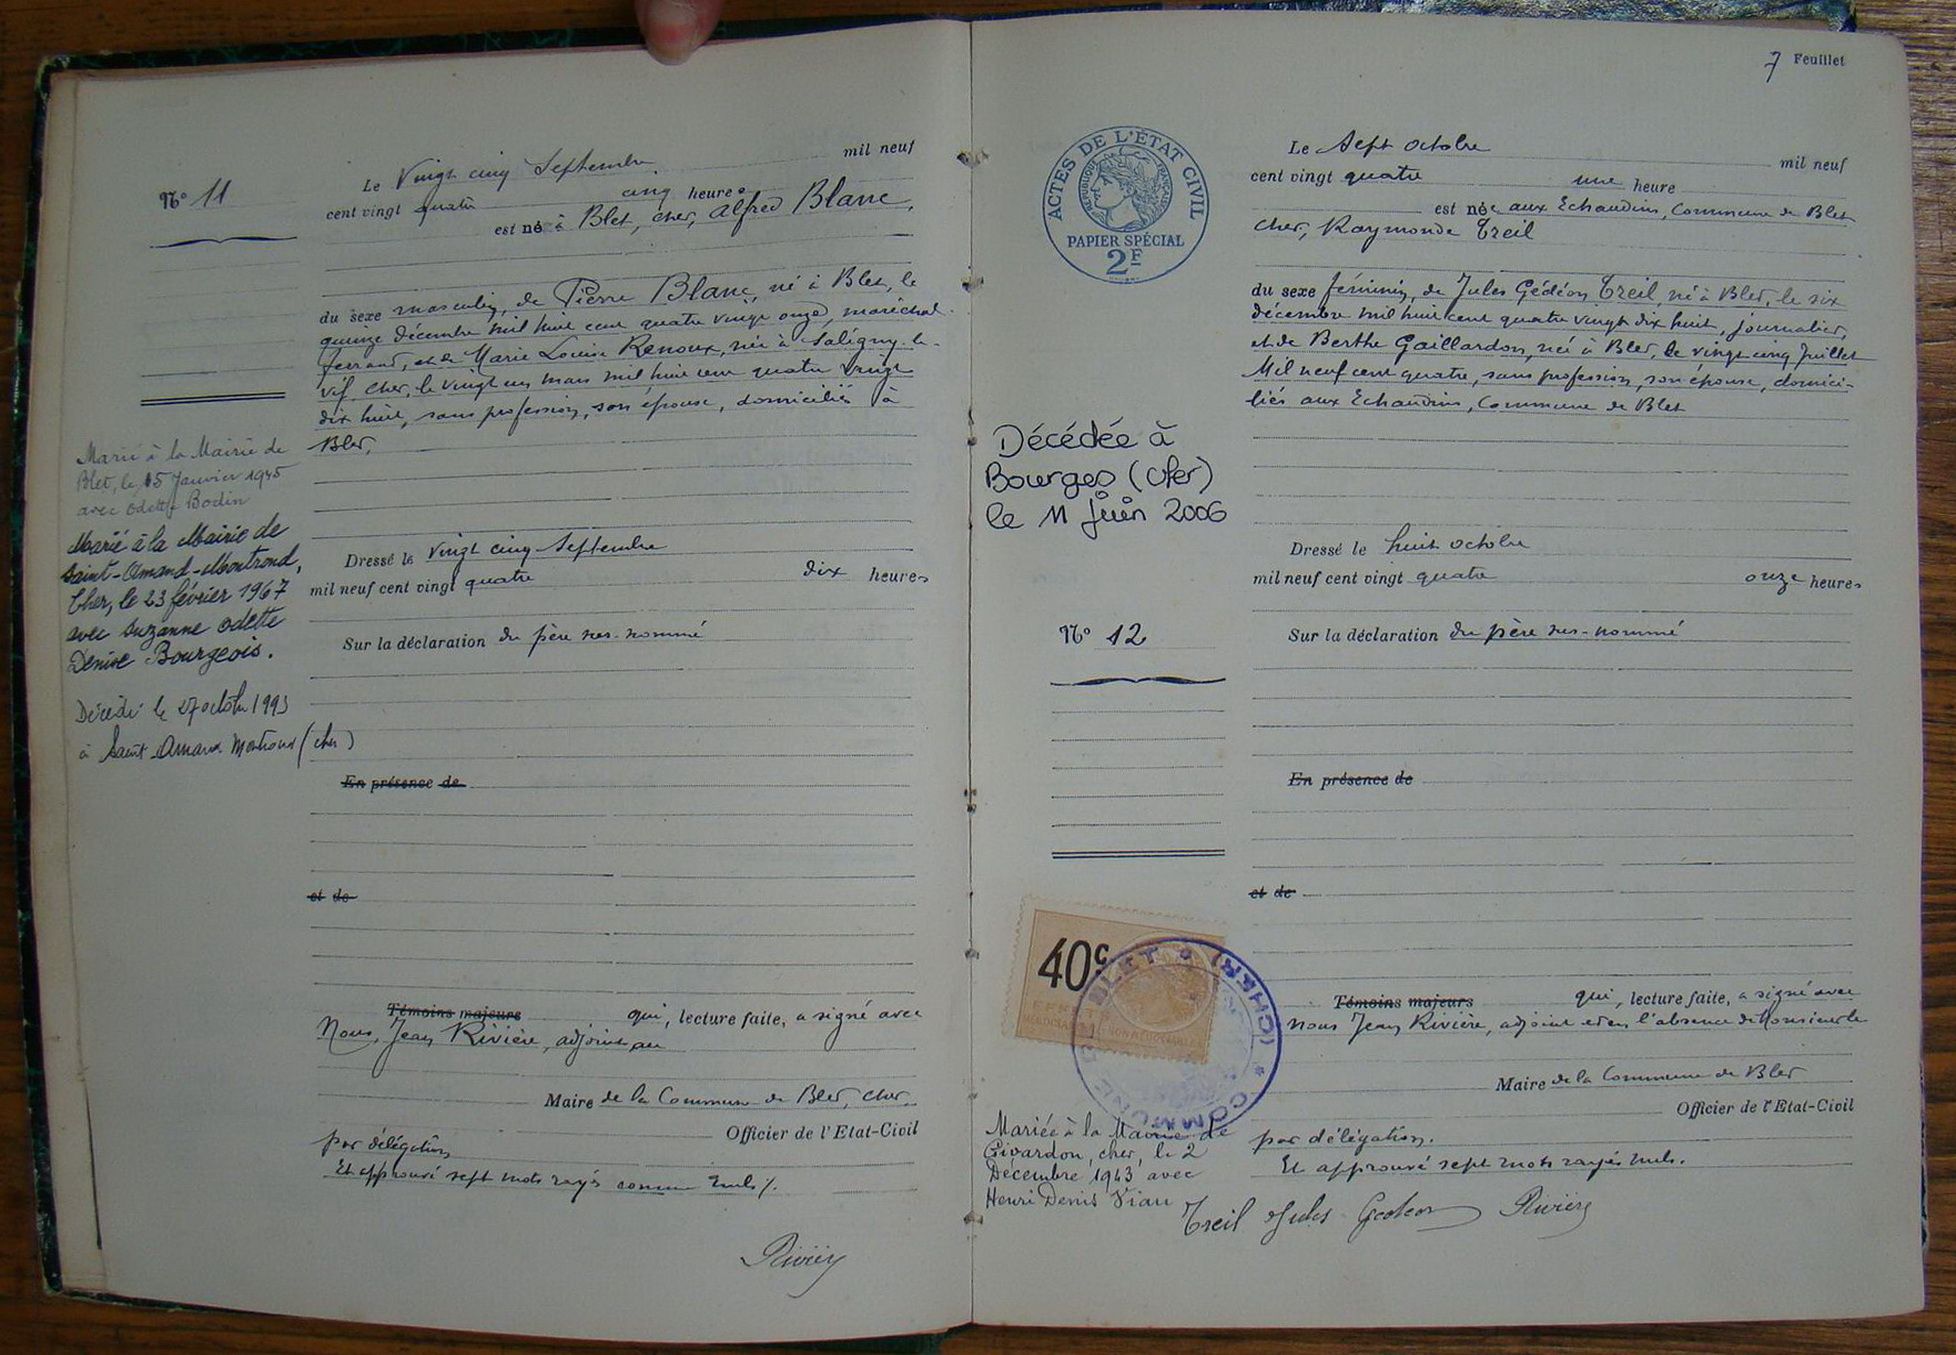 Nº 11
Le Vingt cinq Septembre mil neuf
cent vingt quatre cinq heures
est né à Blet, cher, Alfred Blanc,
du sexe masculin, de Pierre Blanc, né à Blet, le
quinze décembre mil huit cent quatre vingt onze, maréchal
ferrand, et de Marie Louise Renoux, née à Saligny-le-
vif, cher, le vingt un mars mil huit cent quatre vingt
dix huit, sans profession, son épouse, domiciliés à
Blet,
Marié à la Mairie de
Blet, le 15 Janvier 1945
avec Odette Bodin
Marié à la Mairie de
Saint-Amand-Montrond,
Cher, le 23 février 1967
avec Suzanne Odette
Denise Bourgeois.
Décédé le 27 octobre 1993
à Saint-Amand Montrond (cher)
Dressé le vingt cinq Septembre
mil neuf cent vingt quatre dix heures
Sur la déclaration du père sus-nommé
En présence de
et de
Témoins majeurs qui, lecture faite, a signé avec
Nous, Jean Rivière, adjoint au
Maire de la Commune de Blet, cher,
Officier de l'Etat-Civil
par délégation
Et approuvé sept mots rayés comme nuls
Rivière
7 Feuillet
ACTES DE L'ÉTAT CIVIL
RÉPUBLIQUE FRANÇAISE
PAPIER SPÉCIAL
2F
Le Sept octobre mil neuf
cent vingt quatre une heure
est née aux Echaudins, Commune de Blet
cher, Raymonde Treil
du sexe féminin, de Jules Gédéon Treil, né à Blet, le six
décembre mil huit cent quatre vingt dix huit, journalier,
et de Berthe Gaillardon, née à Blet, le vingt cinq Juillet
Mil neuf cent quatre, sans profession, son épouse, domici-
liés aux Echaudins, Commune de Blet
Décédée à
Bourges (Cher)
le 11 juin 2006
Dressé le huit octobre
mil neuf cent vingt quatre onze heures
Nº 12
Sur la déclaration du père sus-nommé
En présence de
et de
40c
COMMUNE DE BLET (CHER)
Témoins majeurs qui, lecture faite, a signé avec
Nous Jean Rivière, adjoint et en l'absence de Monsieur le
Maire de la Commune de Blet
Officier de l'Etat-Civil
par délégation.
Et approuvé sept mots rayés nuls.
Mariée à la Mairie de
Givardon, cher, le 2
Décembre 1943 avec
Henri Denis Viau
Treil Jules Gedeon Rivière